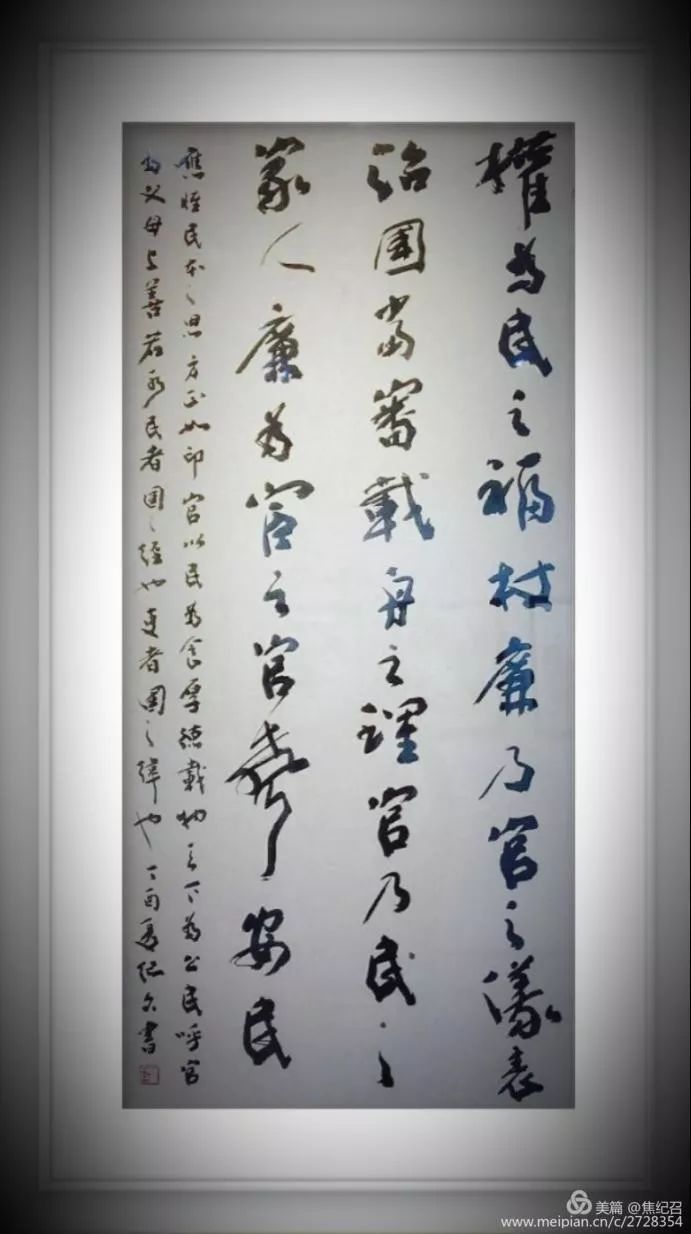 權為民之福杖廉乃官之儀表
治國當審載舟之理官乃民之
家人廉為官之官壽安民
應晅民本之思方正如印官以民為食厚德載物天下為公民呼官
為父母与善若水民者國之經也吏者國之緯也丁酉夏纪召書
美篇 @焦纪召
www.meipian.cn/c/2728354